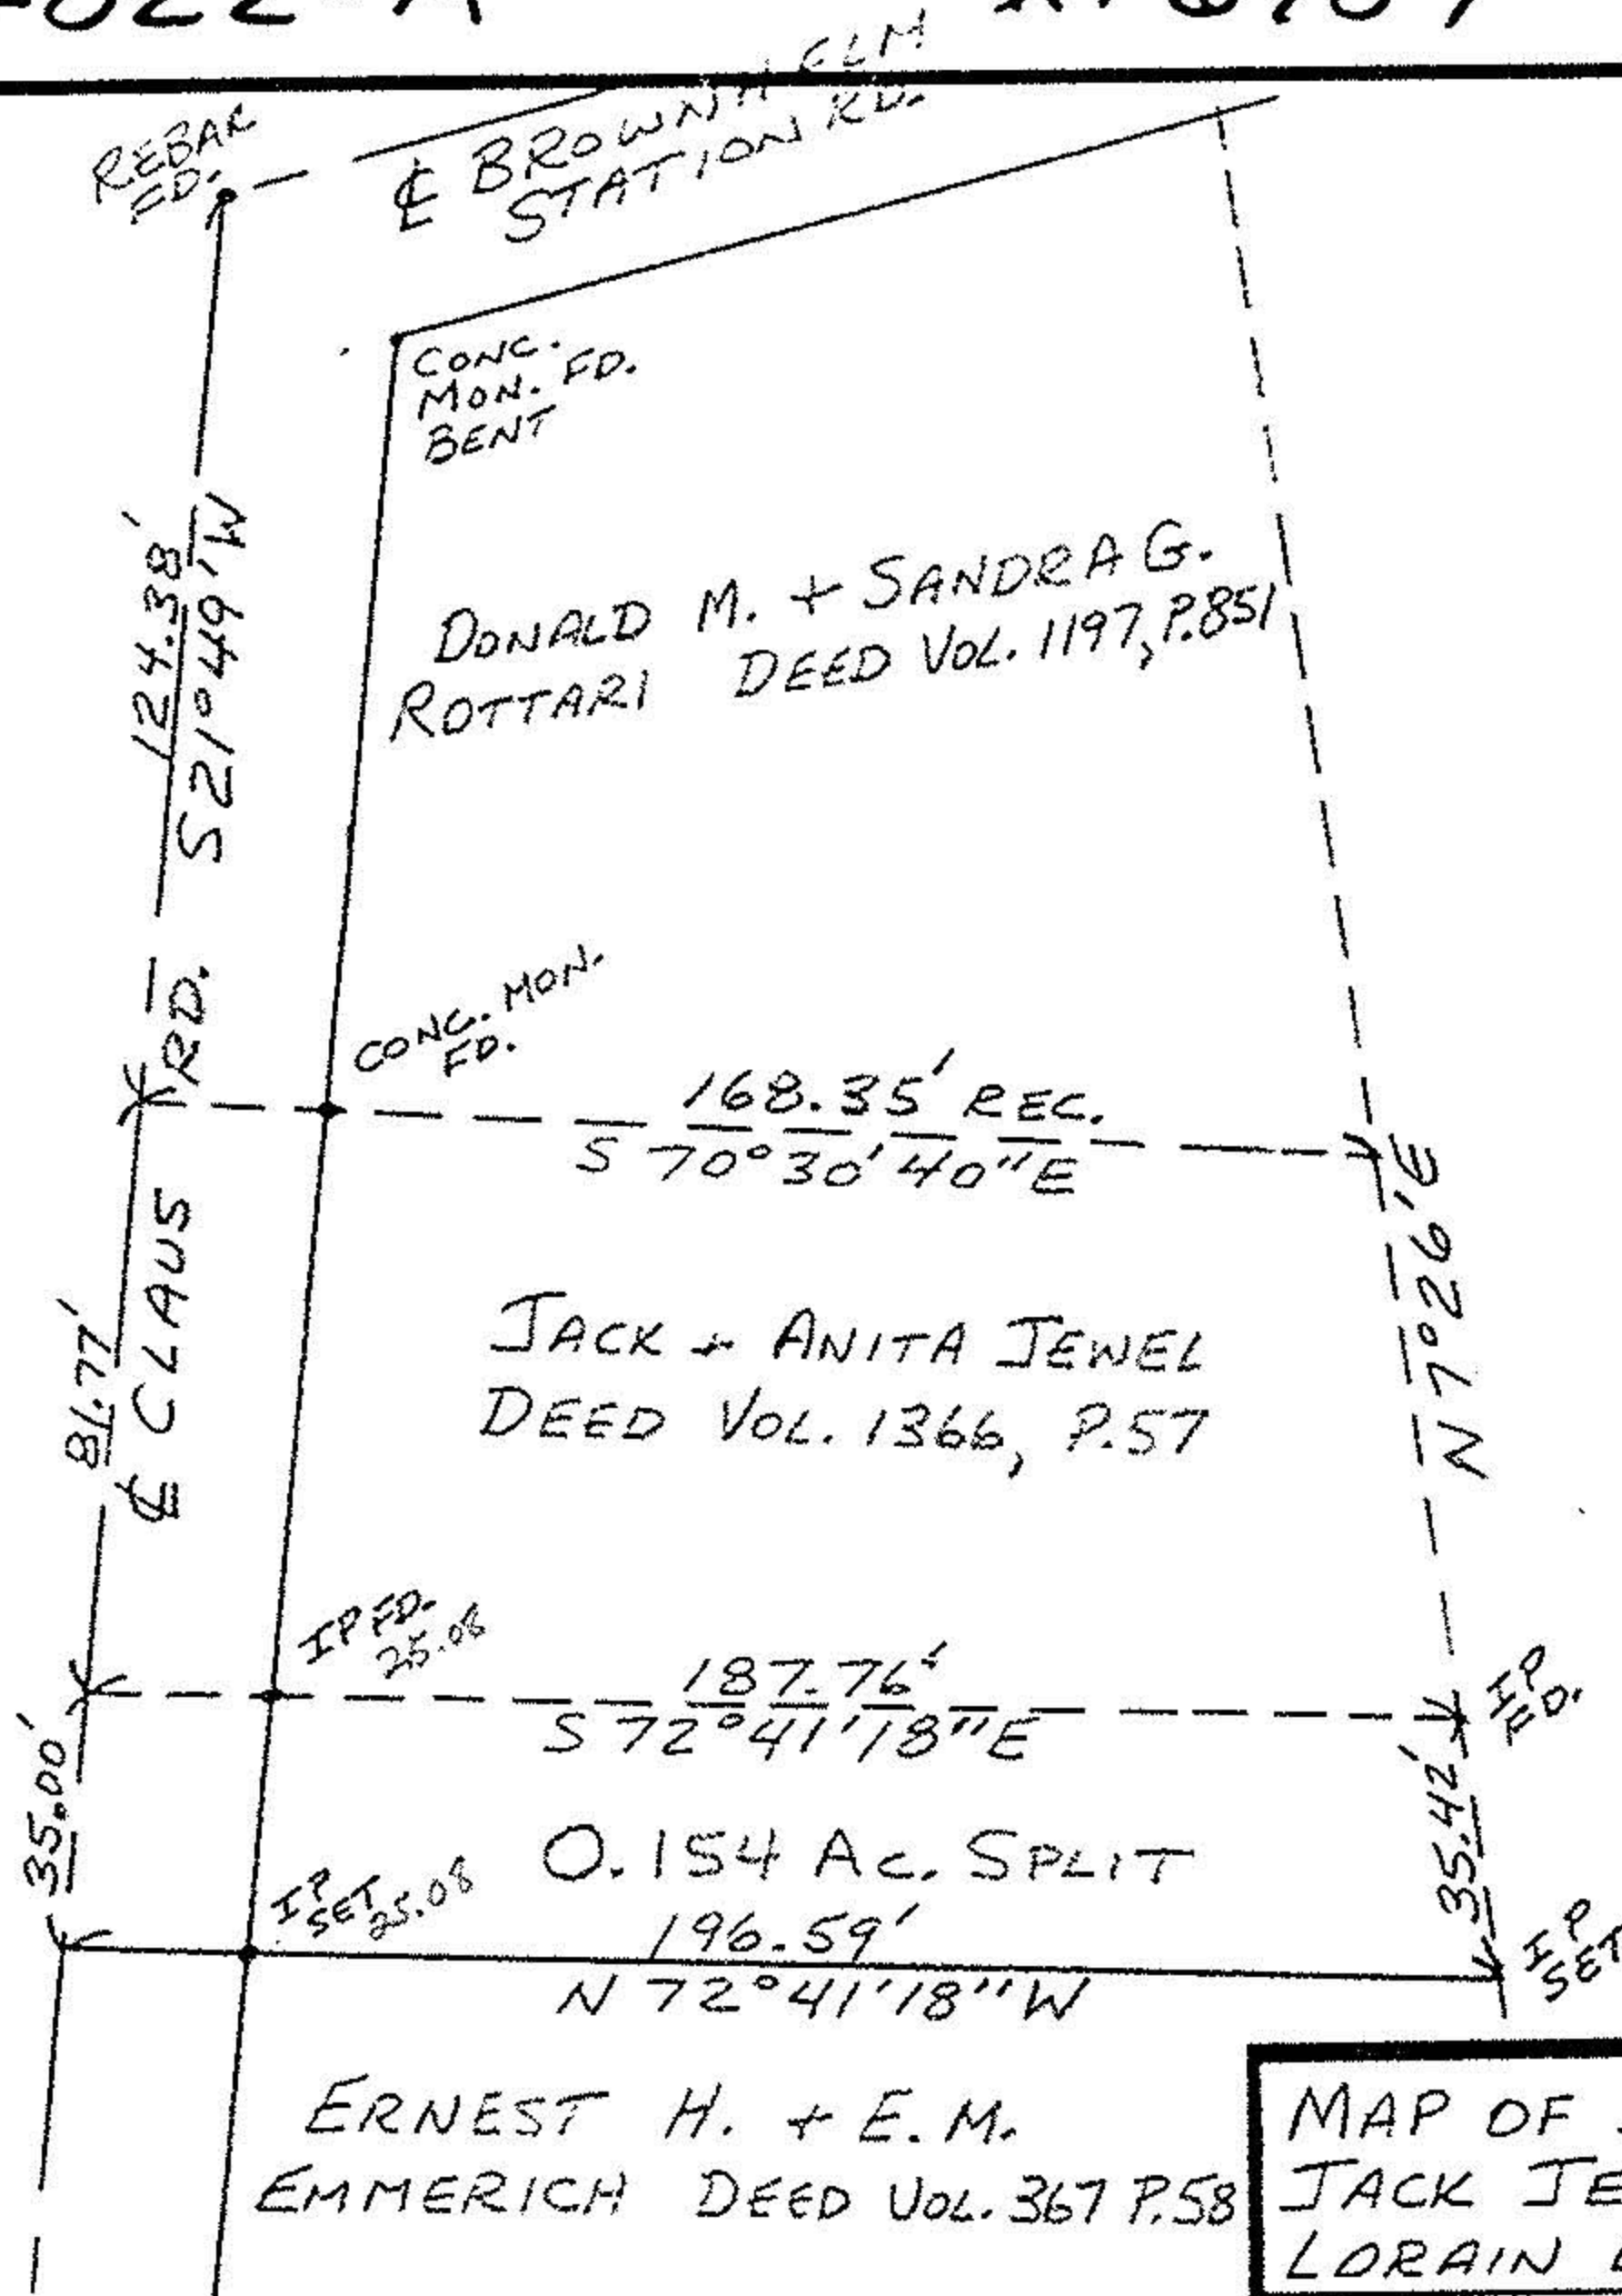 REBAR
FD.
℄ BROWNHELM
STATION RD.
CONC.
MON. FD.
BENT
124.38'
S 21° 49' W
DONALD M. + SANDRA G.
ROTTARI DEED VOL. 1197, P.851
CONC. MON.
FD.
168.35' REC.
S 70° 30' 40" E
℄ CLAUS RD.
81.77'
N 7° 26' E
JACK + ANITA JEWEL
DEED VOL. 1366, P.57
IP FD.
25.08
187.76'
S 72° 41' 18" E
IP
FD.
35.00'
35.42'
0.154 AC. SPLIT
IP
SET
25.08
196.59'
N 72° 41' 18" W
IP
SET
ERNEST H. + E. M.
EMMERICH DEED VOL. 367 P.58
MAP OF
JACK JE
LORAIN